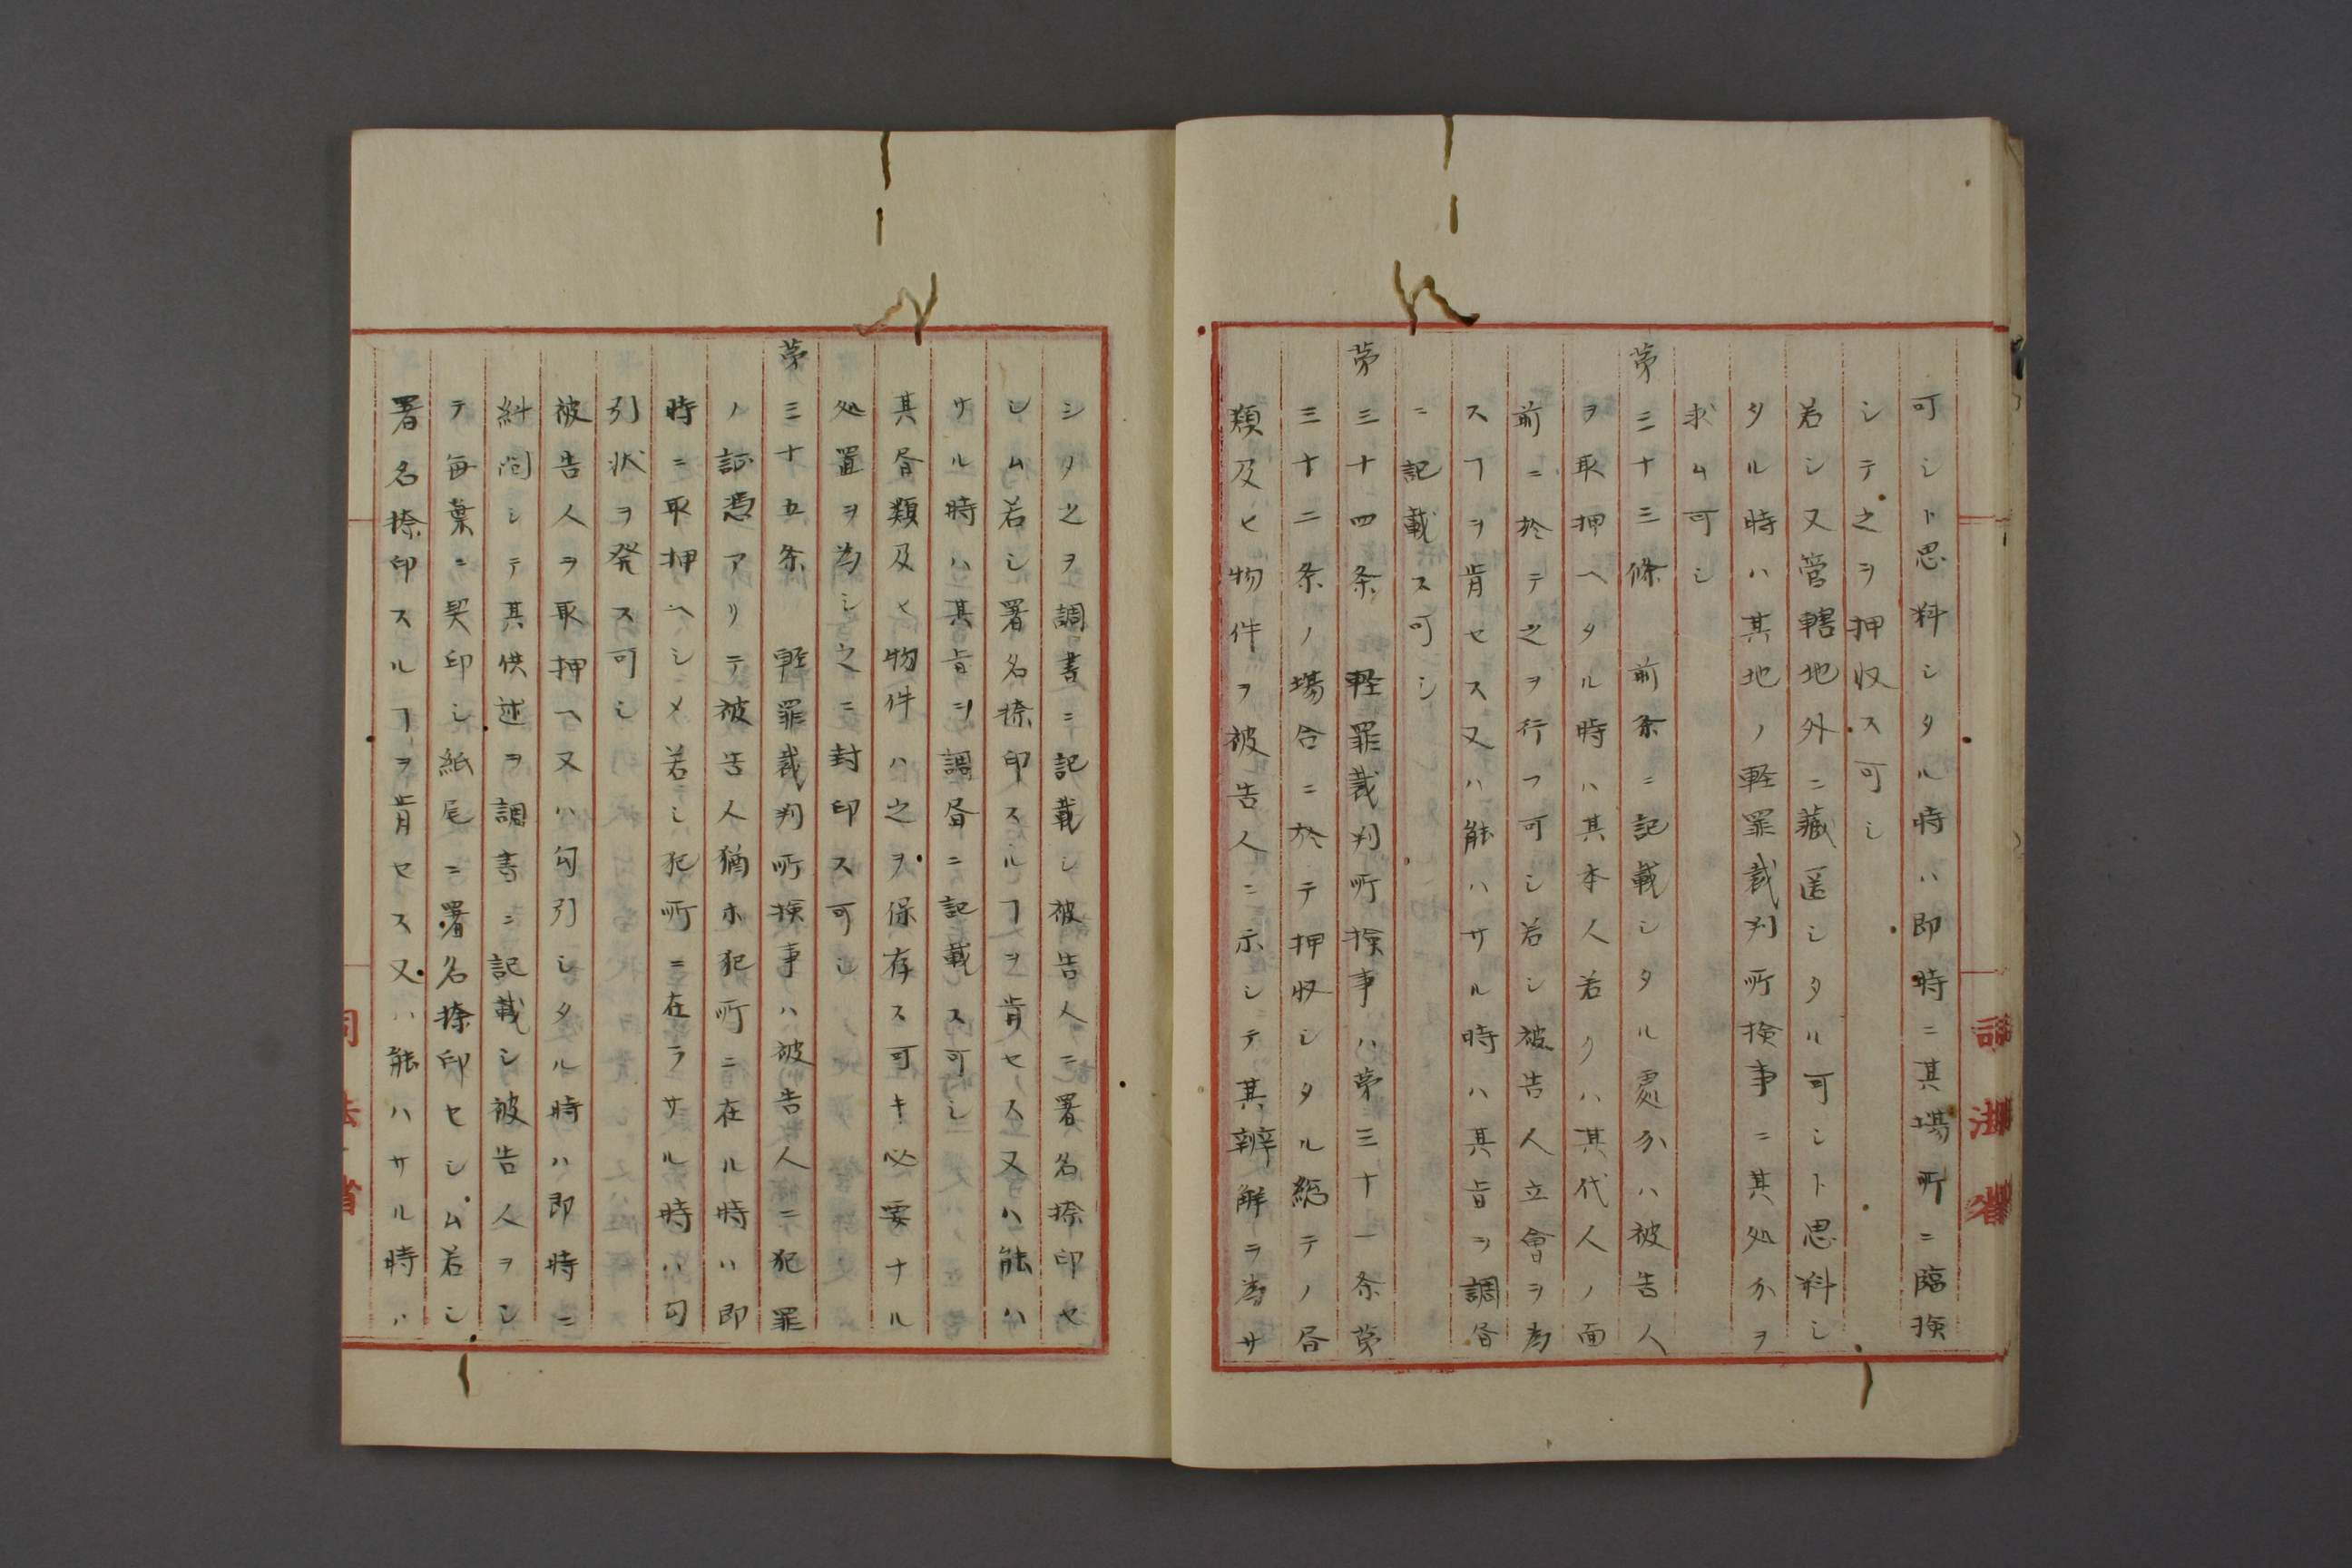 可シト思料シタル時ハ即時ニ其場所ニ臨撿
シテ之ヲ押収ス可シ
若シ又管轄地外ニ藏匿シタル可シト思料シ
タル時ハ其地ノ軽罪裁判所撿事ニ其処分ヲ
求ム可シ
第三十三條　前条ニ記載シタル處分ハ被告人
ヲ取押ヘタル時ハ其本人若クハ其代人ノ面
前ニ於テ之ヲ行フ可シ若シ被告人立會ヲ為
スヿヲ肯セス又ハ能ハサル時ハ其旨ヲ調昏
ニ記載ス可シ
第三十四条　軽罪裁判所撿事ハ第三十一条第
三十二条ノ場合ニ於テ押収シタル総テノ昏
類及ヒ物件ヲ被告人ニ示シテ其辨解ヲ為サ
シメ之ヲ調書ニ記載シ被告人ニ署名捺印セ
シム若シ署名捺印スルヿヲ肯セス又ハ能ハ
サル時ハ其旨ヲ調昏ニ記載ス可シ
其昏類及ヒ物件ハ之ヲ保存ス可キ必要ナル
処置ヲ為シ之ニ封印ス可シ
第三十五条　軽罪裁判所撿事ハ被告人ニ犯罪
ノ証憑アリテ被告人猶ホ犯所ニ在ル時ハ即
時ニ取押ヘシメ若シ犯所ニ在ラサル時ハ勾
引状ヲ発ス可シ
被告人ヲ取押ヘ又ハ勾引シタル時ハ即時ニ
糾問シテ其供述ヲ調書ニ記載シ被告人ヲシ
テ毎葉ニ契印シ紙尾ニ署名捺印セシム若シ
署名捺印スルヿヲ肯セス又ハ能ハサル時ハ
司法省